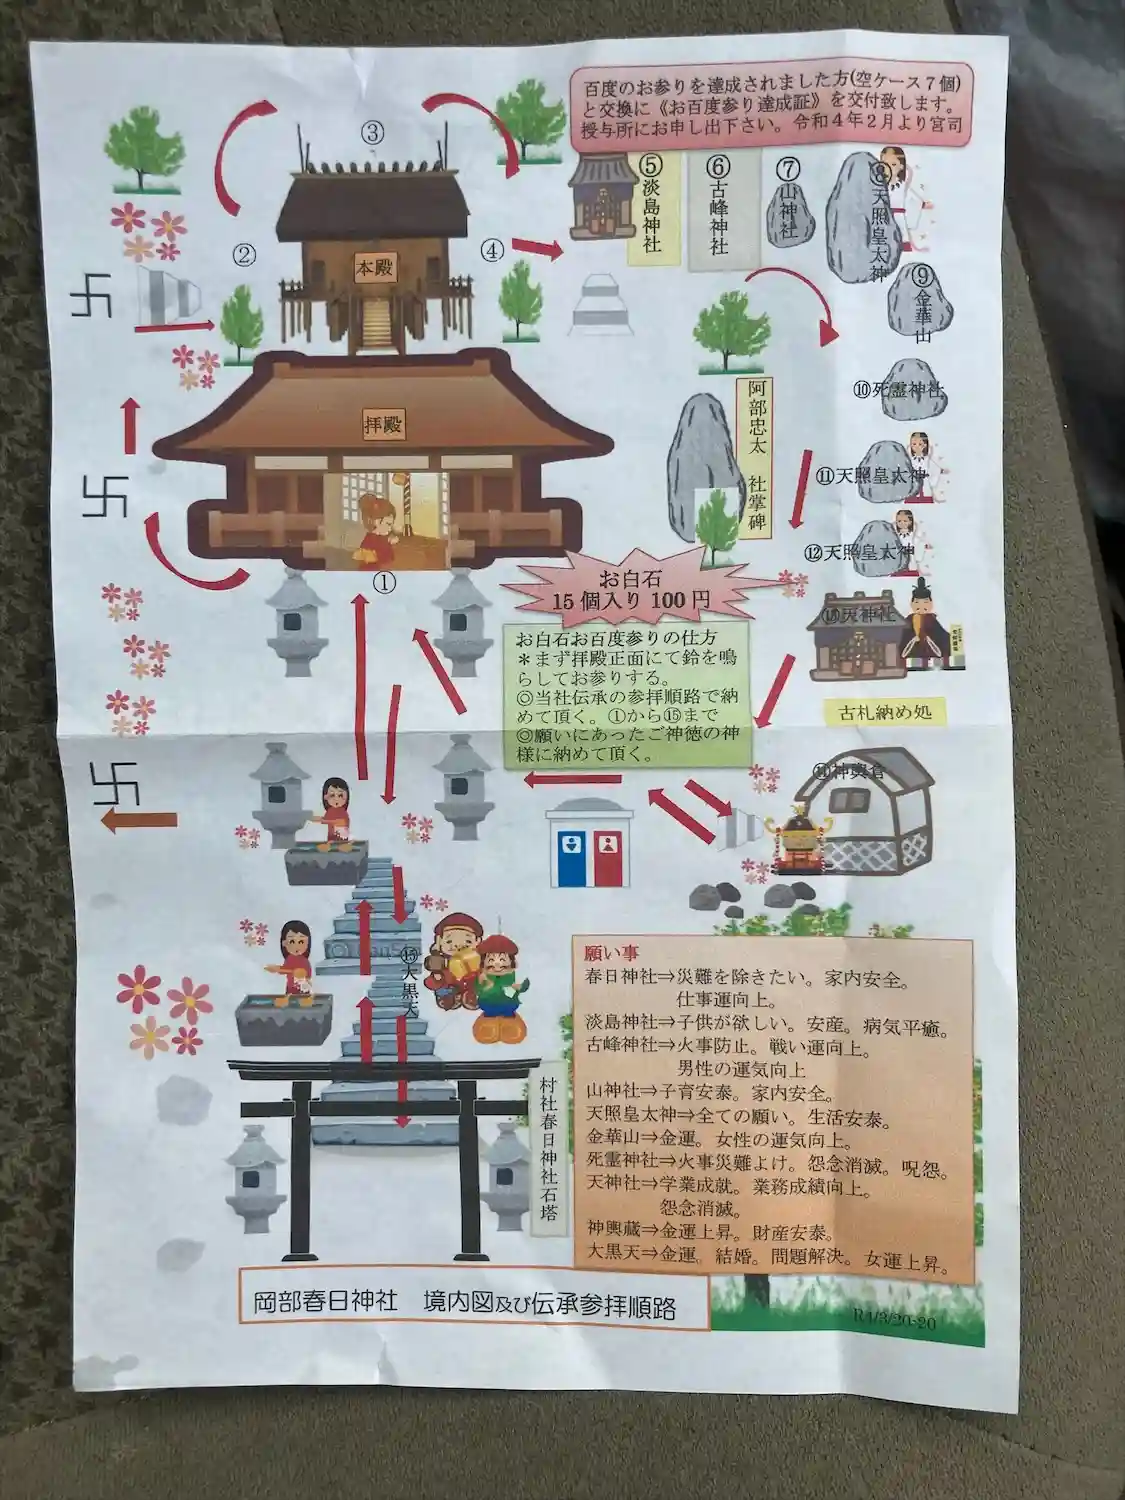 百度のお参りを達成されました方(空ケース7個)
と交換に《お百度参り達成証》を交付致します。
授与所にお申し出下さい。令和4年2月より宮司
③
②
④
本殿
拝殿
①
⑤淡島神社
⑥古峰神社
⑦山神社
⑧天照皇大神
⑨金華山
⑩死霊神社
⑪天照皇大神
⑫天照皇大神
阿部忠太 社掌碑
卐
卐
卐
お白石
15個入り100円
お白石お百度参りの仕方
＊まず拝殿正面にて鈴を鳴
らしてお参りする。
◎当社伝承の参拝順路で納
めて頂く。①から⑮まで
◎願いにあったご神徳の神
様に納めて頂く。
⑬天神社
古札納め処
⑭神輿倉
⑮大黒天
村社春日神社石塔
願い事
春日神社⇒災難を除きたい。家内安全。
仕事運向上。
淡島神社⇒子供が欲しい。安産。病気平癒。
古峰神社⇒火事防止。戦い運向上。
男性の運気向上
山神社⇒子育安泰。家内安全。
天照皇大神⇒全ての願い。生活安泰。
金華山⇒金運。女性の運気向上。
死霊神社⇒火事災難よけ。怨念消滅。呪怨。
天神社⇒学業成就。業務成績向上。
怨念消滅。
神輿蔵⇒金運上昇。財産安泰。
大黒天⇒金運。結婚。問題解決。女運上昇。
岡部春日神社 境内図及び伝承参拝順路
R4/3/20-20